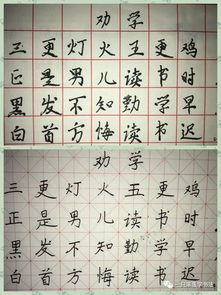 劝学
三更灯火五更鸡
正是男儿读书时
黑发不知勤学早
白首方悔读书迟
劝学
三更灯火五更鸡
正是男儿读书时
黑发不知勤学早
白首方悔读书迟